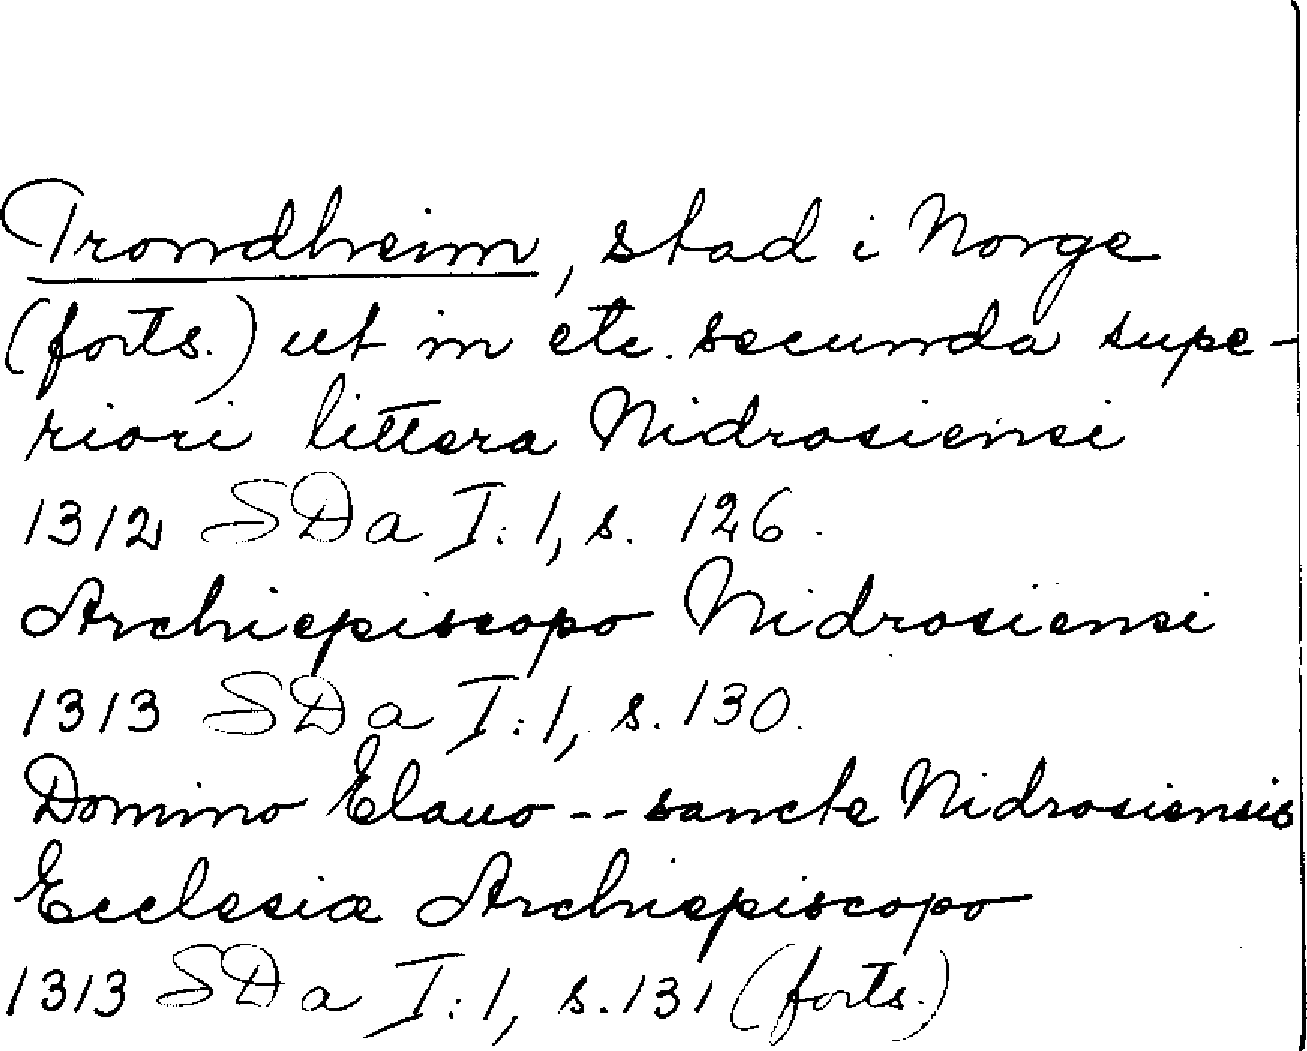 Trondheim, stad i Norge
(forts.) ut in etc. secunda supe-
riori littera Nidrosiensi
1312 SDa I:1, s. 126.
Archiepiscopo Nidrosiensi
1313 SDa I:1, s. 130.
Domino Elauo -- sancte Nidrosiensis
Ecclesiæ Archiepiscopo
1313 SDa I:1, s. 131 (forts.)